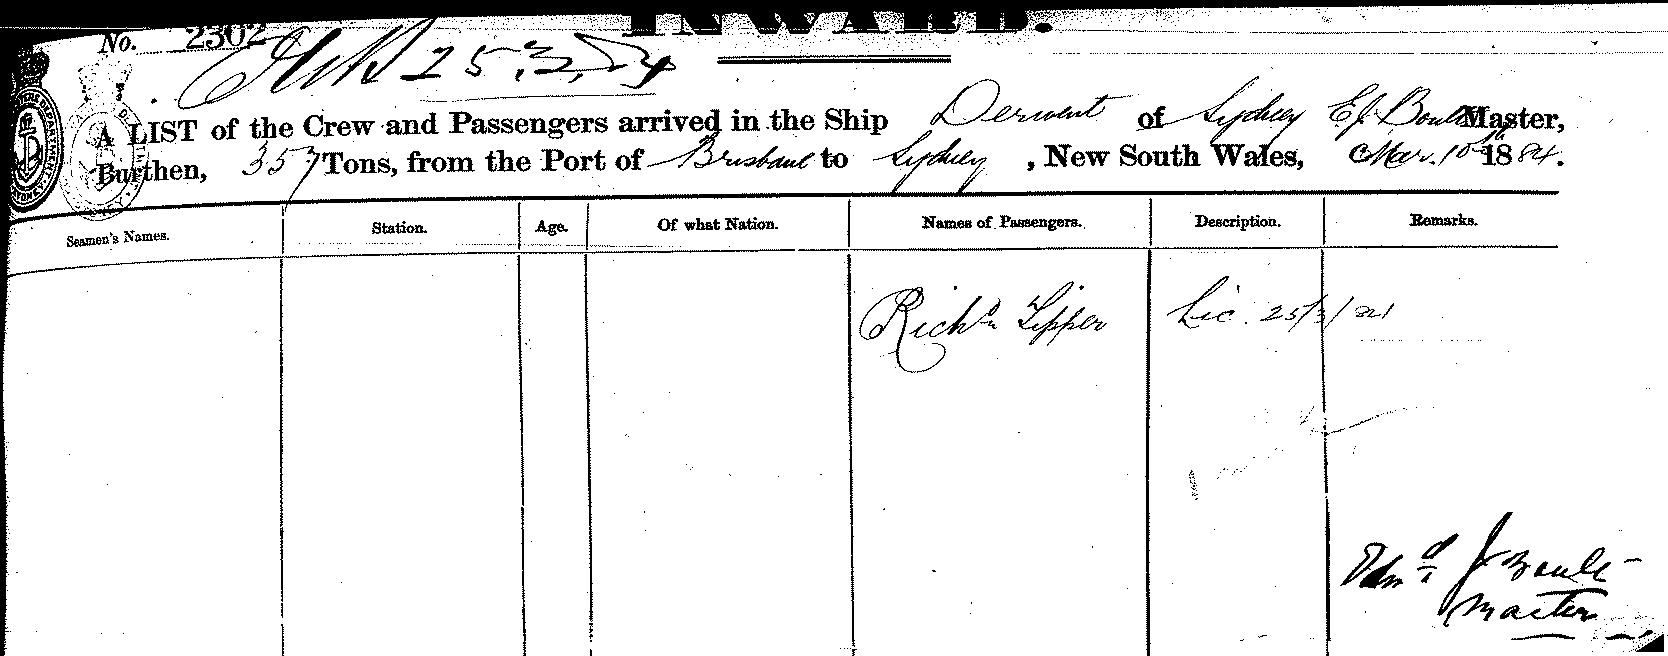 INWARD.
No. 2302
25.3.84
A LIST of the Crew and Passengers arrived in the Ship Derwent of Sydney E J Boult Master,
Burthen, 357 Tons, from the Port of Brisbane to Sydney, New South Wales, Mar. 10th 1884.
Seamen's Names. Station. Age. Of what Nation. Names of Passengers. Description. Remarks.
Richd Lipper Lic. 25/3/84
Edmd J Boult
Master